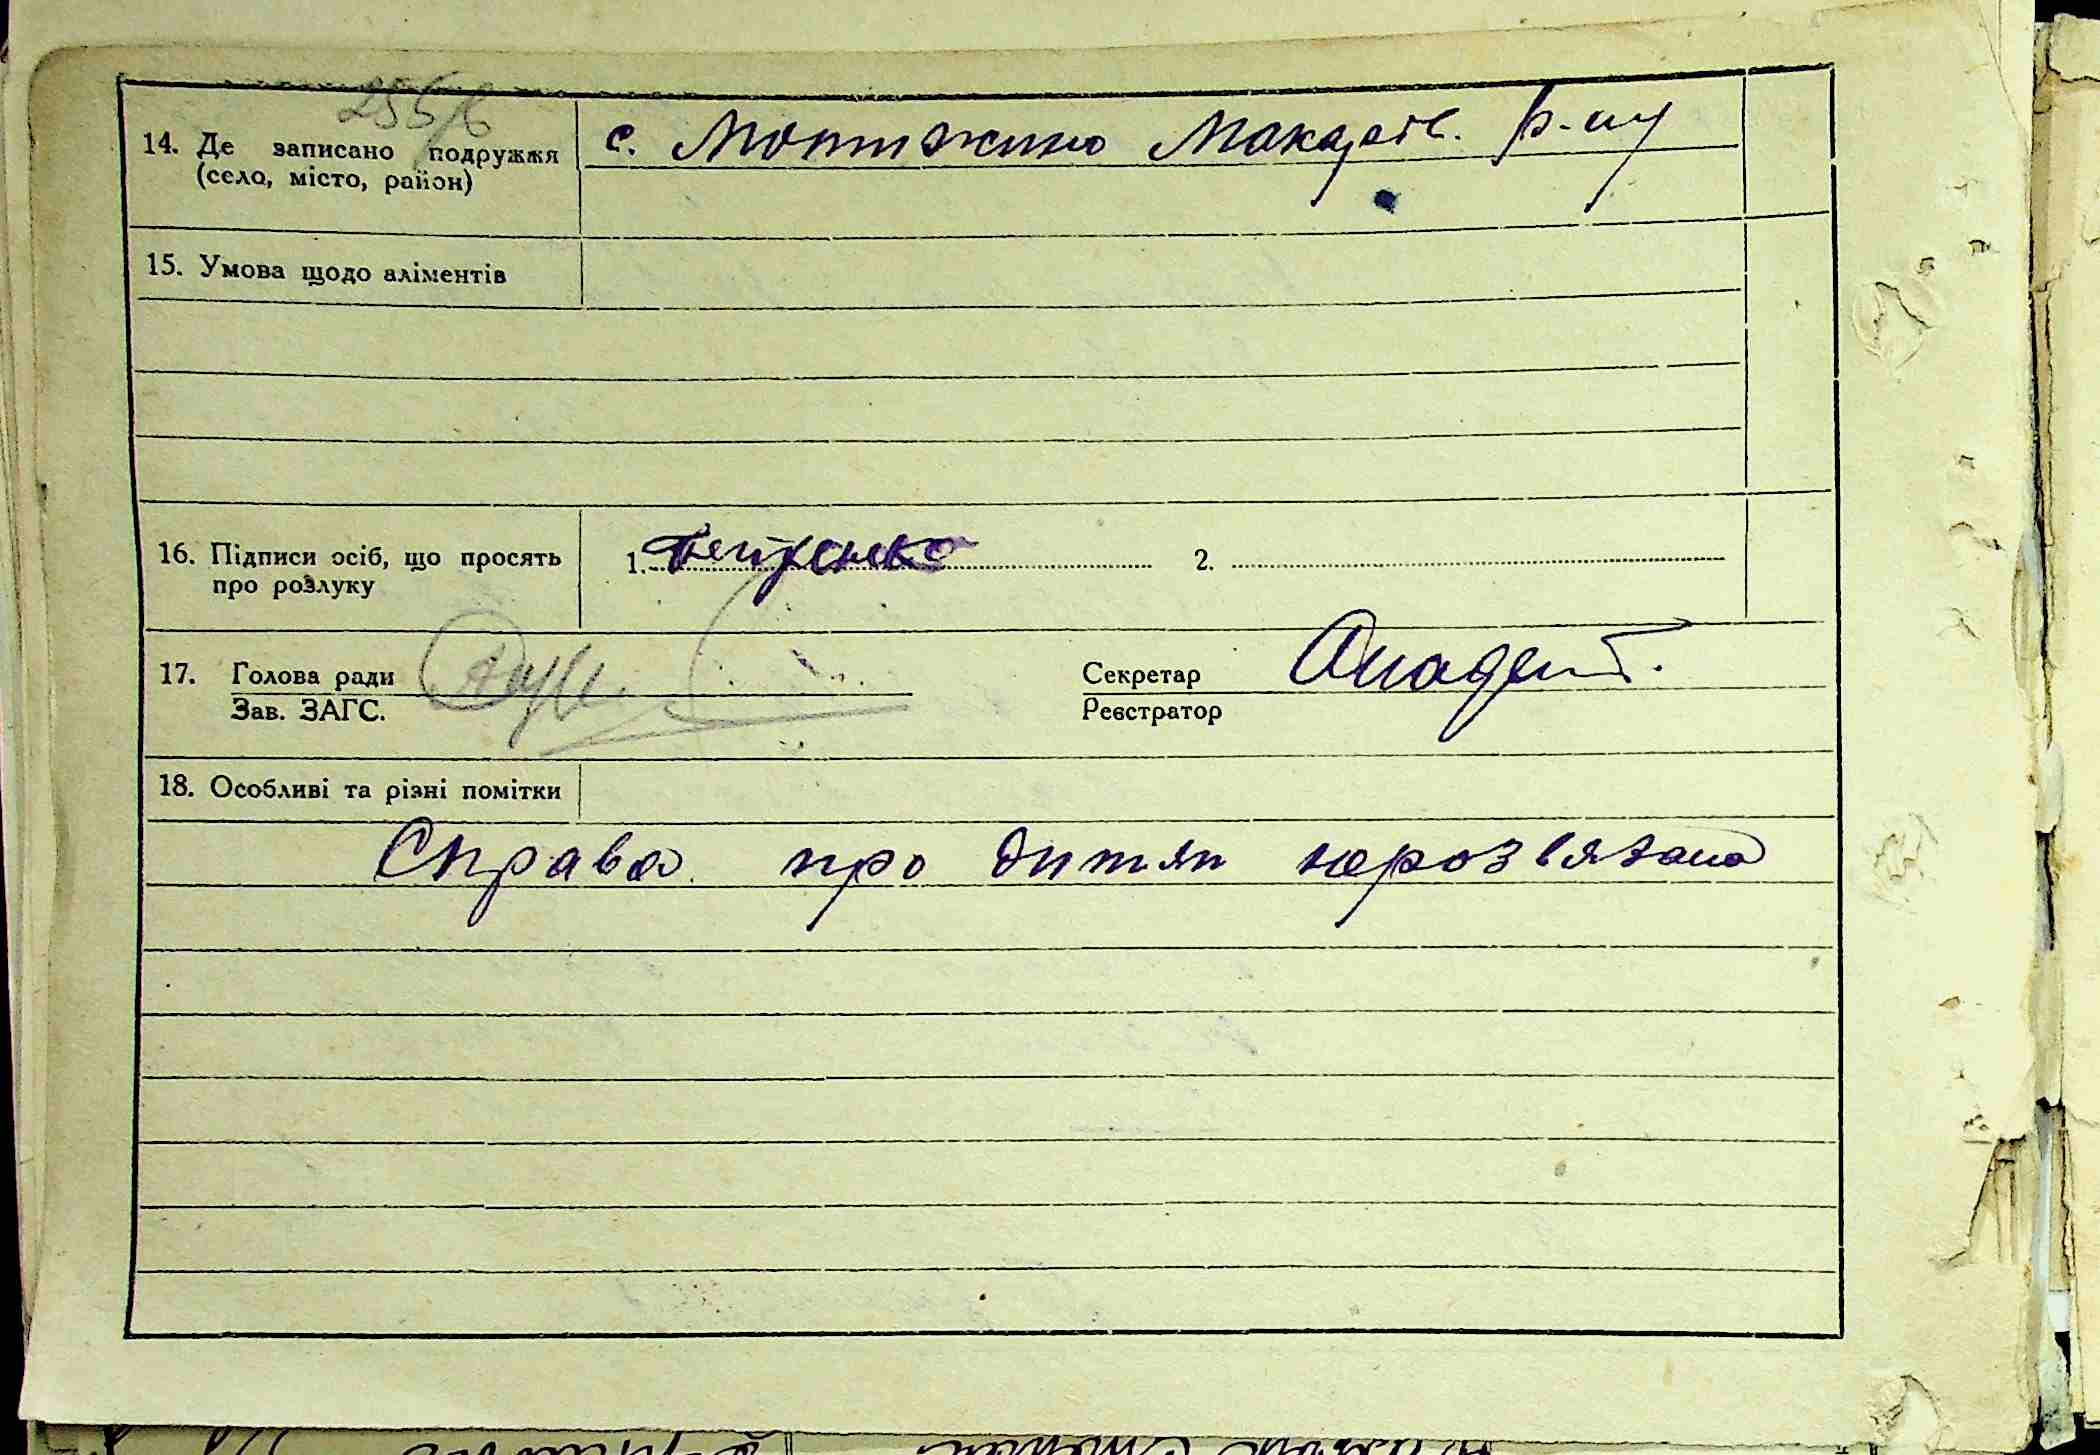 14. Де записано подружжя
(село, місто, район)
с. Мотижино Макарів. р-ну
15. Умова щодо аліментів
16. Підписи осіб, що просять
про розлуку
1. Петренко 2.
17. Голова ради
Зав. ЗАГС.
Секретар
Реєстратор
18. Особливі та різні помітки
Справа про дитяп нерозвязана